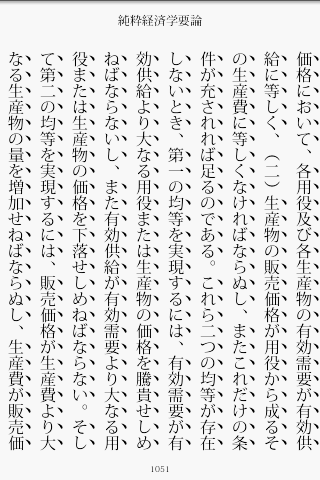 純粋経済学要論
価格において、各用役及び各生産物の有効需要が有効供
給に等しく、（二）生産物の販売価格が用役から成るそ
の生産費に等しくなければならぬし、またこれだけの条
件が充されれば足るのである。これら二つの均等が存在
しないとき、第一の均等を実現するには、有効需要が有
効供給より大なる用役または生産物の価格を騰貴せしめ
ねばならないし、また有効供給が有効需要より大なる用
役または生産物の価格を下落せしめねばならない。そし
て第二の均等を実現するには、販売価格が生産費より大
なる生産物の量を増加せねばならぬし、生産費が販売価
1051